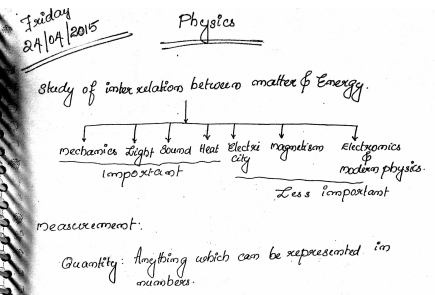 Friday
24/04/2015
Physics
Study of inter relation between matter & Energy.
mechanics Light Sound Heat Electri city magnetism Electronics & modern physics.
Important
Less important
measurement:
Quantity: Anything which can be represented in
numbers.